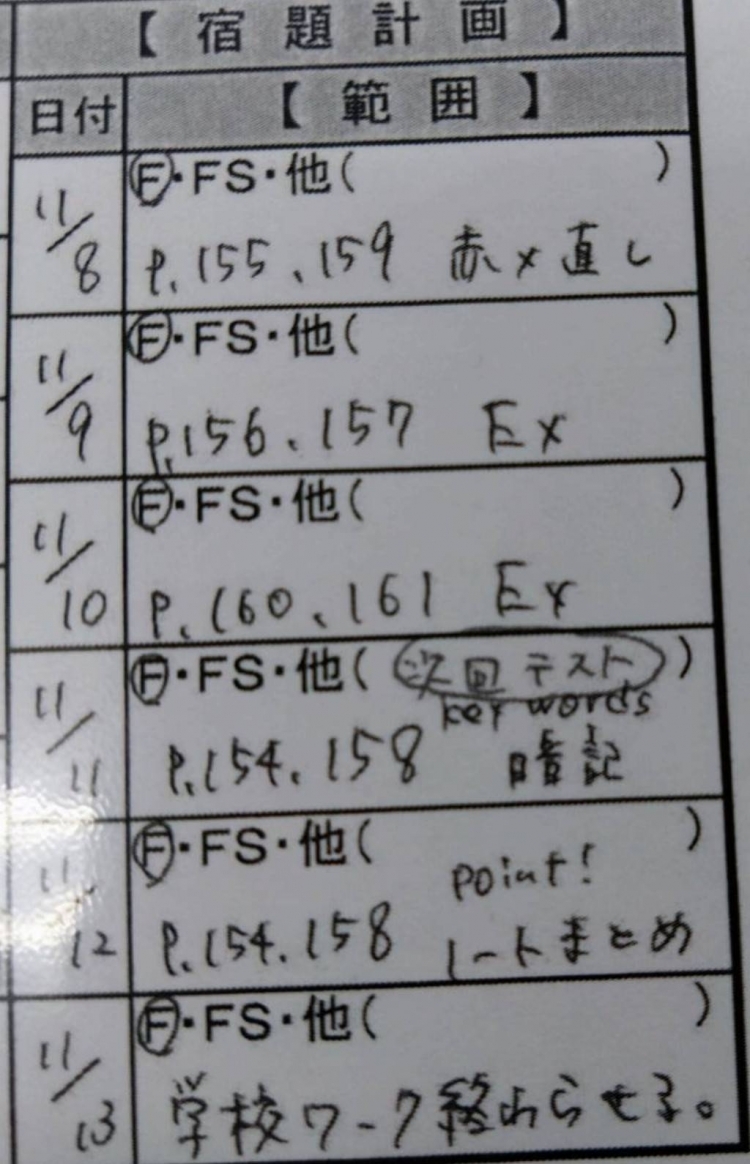 【 宿 題 計 画 】
日付 【 範 囲 】
11/8 Ⓕ・FS・他( )
p.155、159 赤×直し
11/9 Ⓕ・FS・他( )
p.156、157 Ex
11/10 Ⓕ・FS・他( )
p.160、161 Ex
11/11 Ⓕ・FS・他( 次回テスト )
key words
p.154、158 暗記
11/12 Ⓕ・FS・他( )
point!
p.154、158 ノートまとめ
11/13 Ⓕ・FS・他( )
学校ワーク終わらせる。